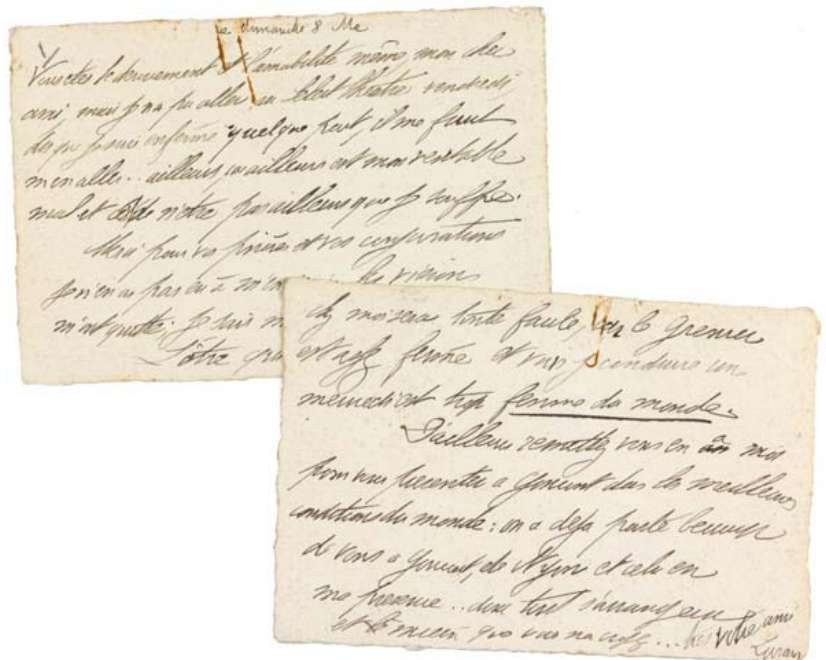 le dimanche 8 Me
Vous êtes le dévouement et l'amabilité même mon cher
ami, mais je n'ai pu aller au théâtre vendredi,
dès que je suis enfermé quelque part, il me faut
m'en aller.. ailleurs, cet ailleurs est mon véritable
mal et de n'être pas ailleurs que je souffre.
Merci pour vos prières et vos conjurations
je n'en ai pas eu à les visions
m'ont quitté; je suis
chez moi sera toute facile, car le Grenier
est assez fermé et vous y conduire un
mercredi est trop femme du monde.
D'ailleurs remettez vous en à moi
pour vous présenter à Goncourt dans les meilleures
conditions du monde: on a déjà parlé beaucoup
de vous à Goncourt, de et cela en
ma présence.. donc tout s'arrangera
et le mieux que vous ... très votre ami
Lorrain